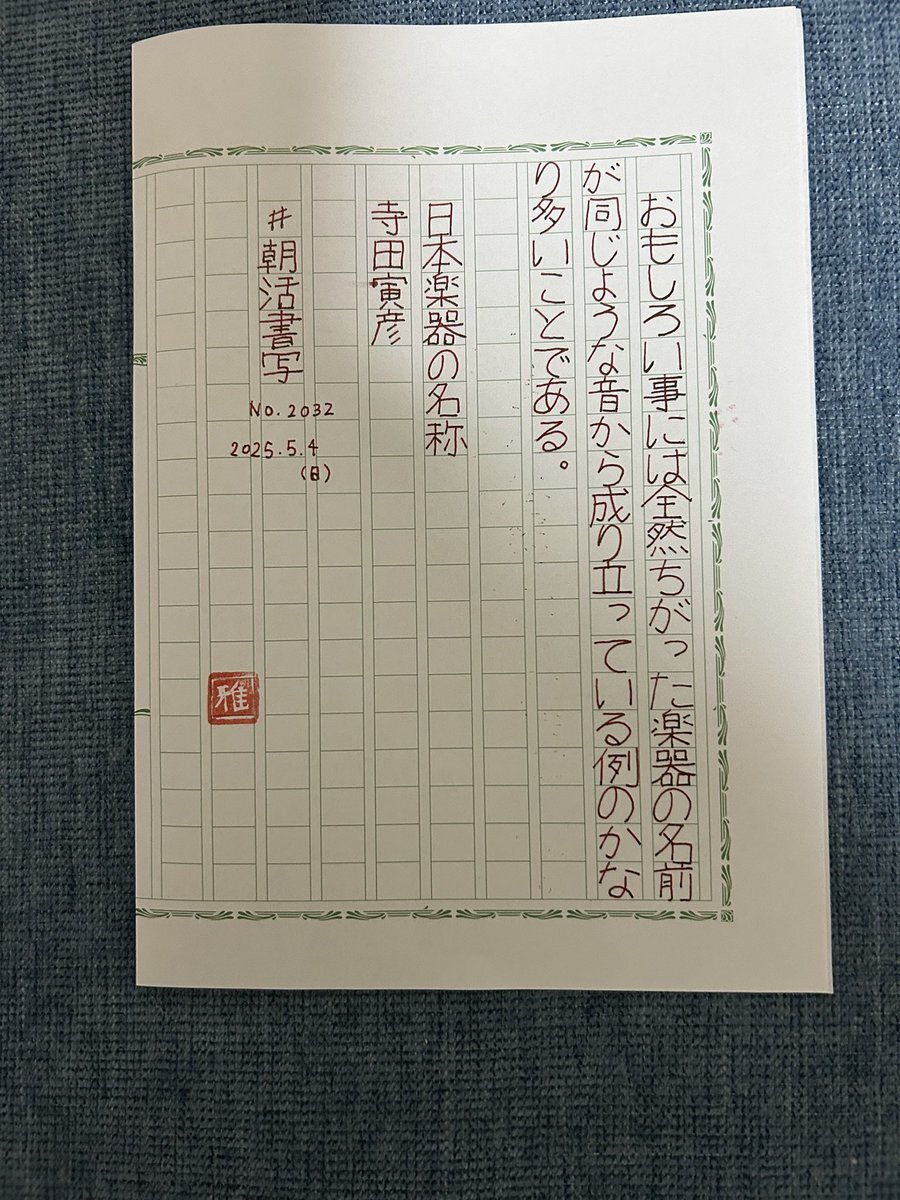 おもしろい事には全然ちがった楽器の名前
が同じような音から成り立っている例のかな
り多いことである。
日本楽器の名称
寺田寅彦
#朝活書写
No.2032
2025.5.4
(日)
雅